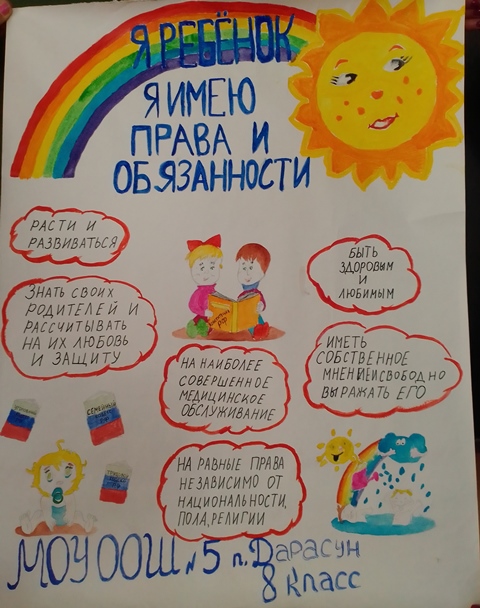 Я РЕБЁНОК
Я ИМЕЮ
ПРАВА И
ОБЯЗАННОСТИ
РАСТИ И
РАЗВИВАТЬСЯ
БЫТЬ
ЗДОРОВЫМ
И
ЛЮБИМЫМ
ЗНАТЬ СВОИХ
РОДИТЕЛЕЙ И
РАССЧИТЫВАТЬ
НА ИХ ЛЮБОВЬ
И ЗАЩИТУ
НА НАИБОЛЕЕ
СОВЕРШЕННОЕ
МЕДИЦИНСКОЕ
ОБСЛУЖИВАНИЕ
ИМЕТЬ
СОБСТВЕННОЕ
МНЕНИЕ И СВОБОДНО
ВЫРАЖАТЬ ЕГО
НА РАВНЫЕ ПРАВА
НЕЗАВИСИМО ОТ
НАЦИОНАЛЬНОСТИ,
ПОЛА, РЕЛИГИИ
МОУ ООШ №5 п. Дарасун
8 Класс